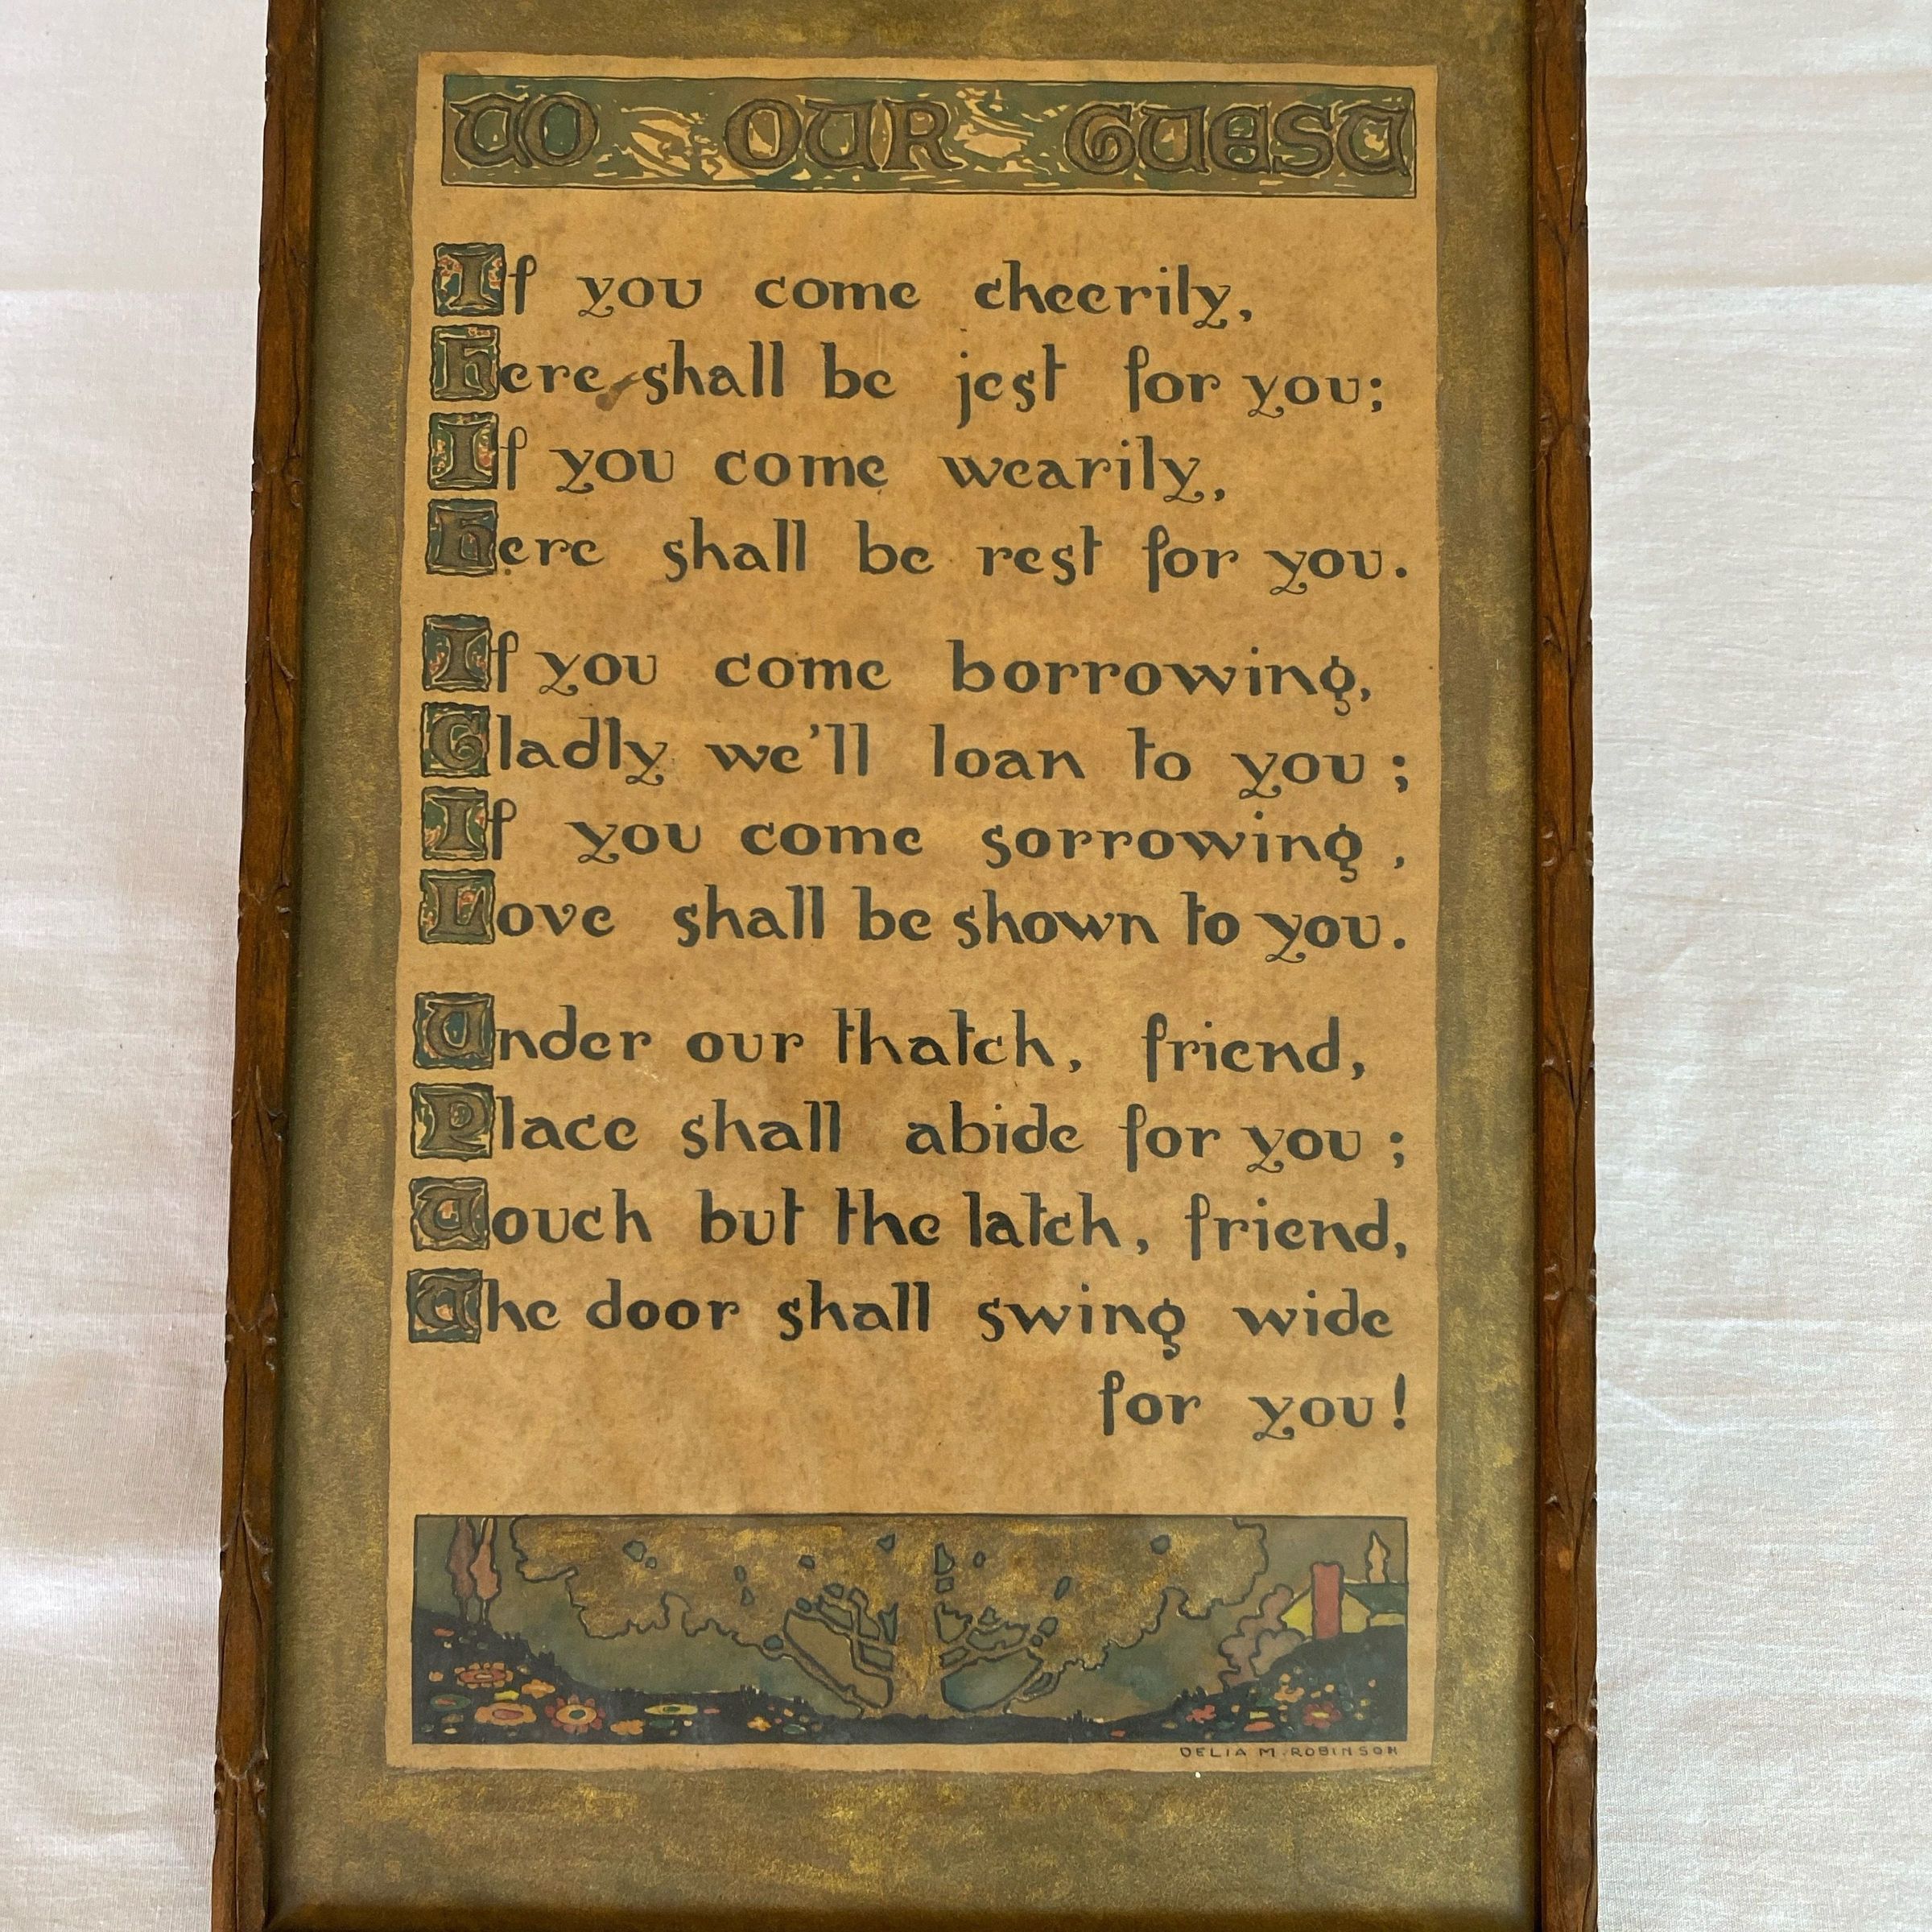 TO OUR GUEST
If you come cheerily,
Here shall be jest for you;
If you come wearily,
Here shall be rest for you.
If you come borrowing,
Gladly we'll loan to you;
If you come sorrowing,
Love shall be shown to you.
Under our thatch, friend,
Place shall abide for you;
Touch but the latch, friend,
The door shall swing wide
for you!
DELIA M. ROBINSON